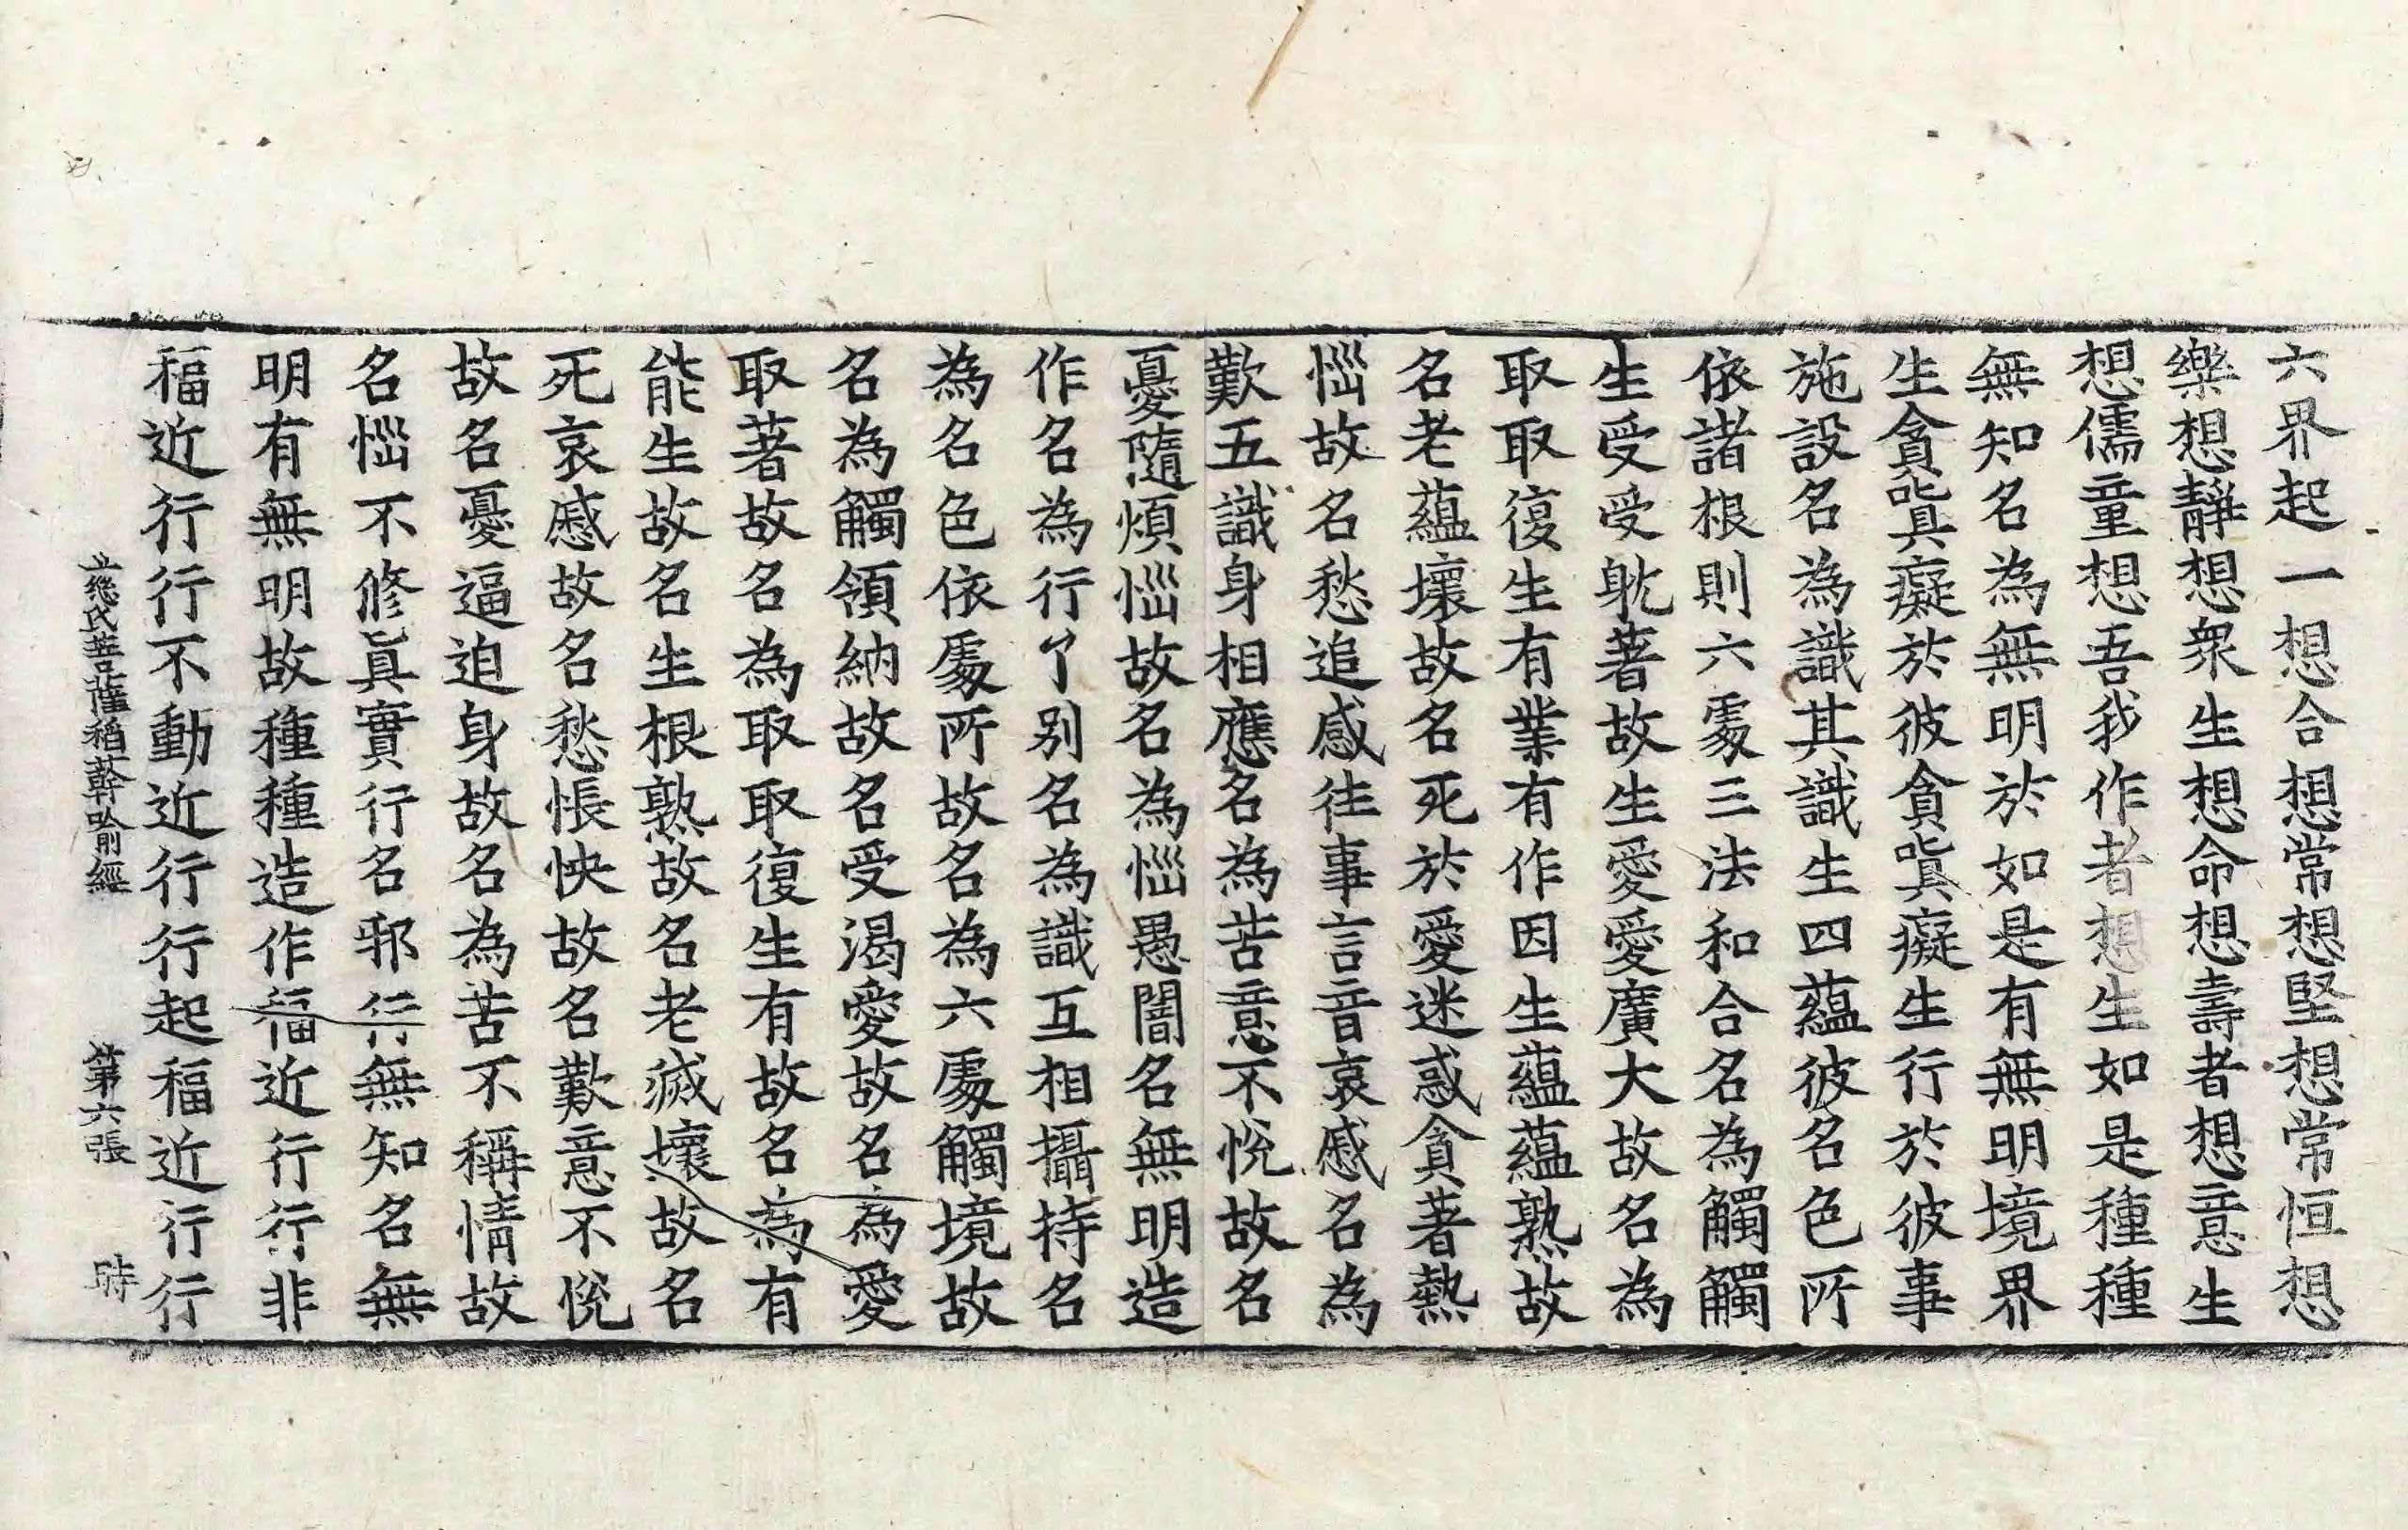 六界起一想合想常想堅想常恒想
樂想靜想衆生想命想壽者想意生
想儒童想吾我作者想生如是種種
無知名為無明於如是有無明境界
生貪嗔癡於彼貪嗔癡生行於彼事
施設名為識其識生四蘊彼名色所
依諸根則六處三法和合名為觸觸
生受受躭著故生愛愛廣大故名為
取取復生有業有作因生蘊蘊熟故
名老蘊壞故名死於愛迷惑貪著熱
惱故名愁追感往事言音哀慼名為
歎五識身相應名為苦意不悅故名
憂隨煩惱故名為惱愚闇名無明造
作名為行了别名為識互相攝持名
為名色依處所故名為六處觸境故
名為觸領納故名受渴愛故名為愛
取著故名為取取復生有故名為有
能生故名生根熟故名老滅壞故名
死哀慼故名愁悵怏故名歎意不悅
故名憂逼迫身故名為苦不稱情故
名惱不修眞實行名邪行無知名無
明有無明故種種造作福近行行非
福近行行不動近行行起福近行行
慈氏菩薩稻𦼮喻經　第六張　時